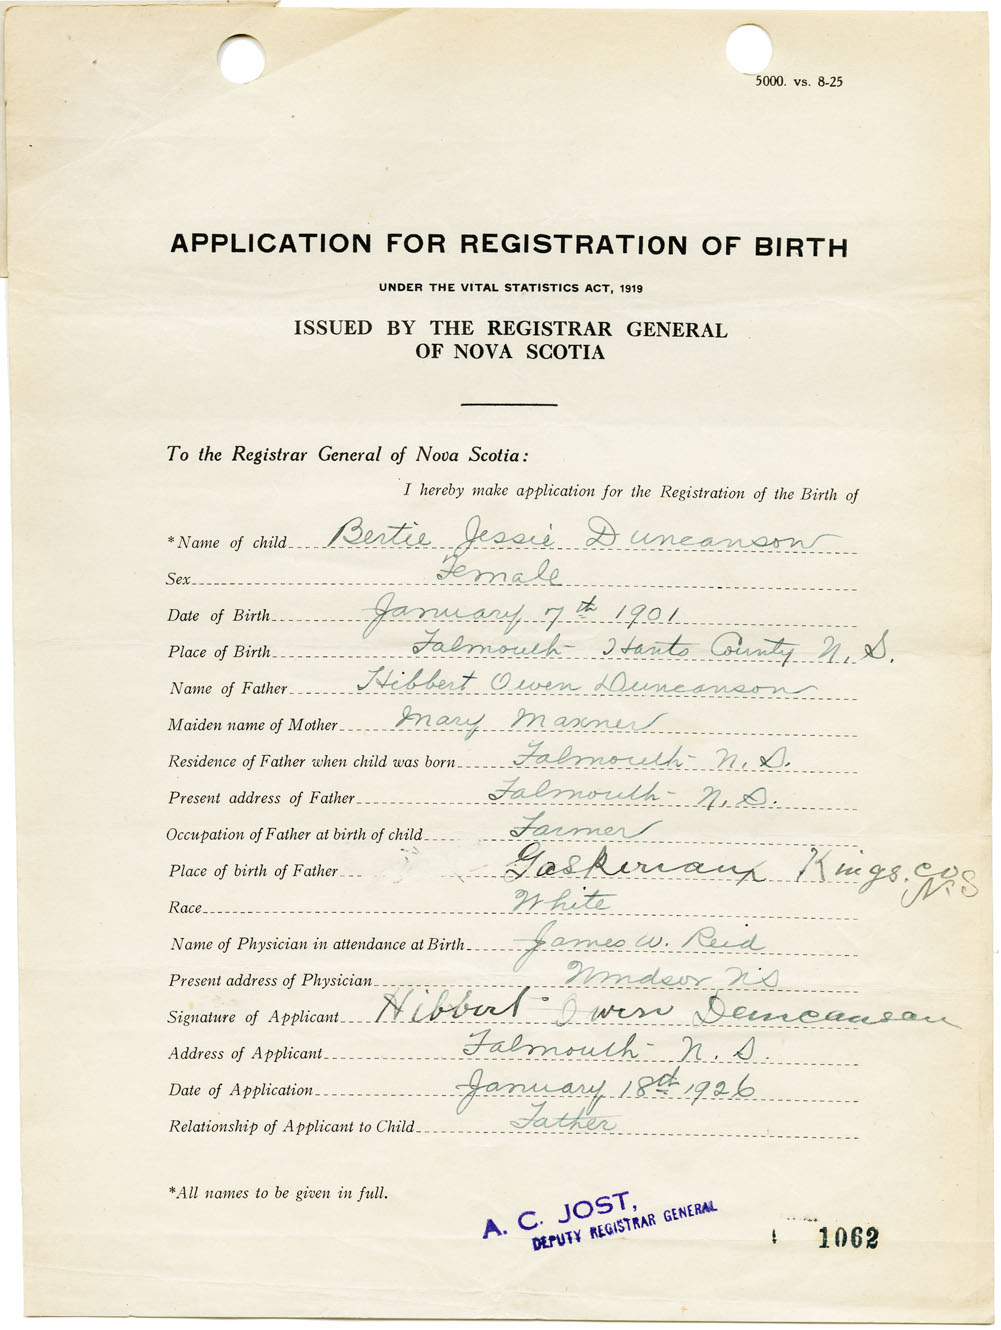 5000. vs. 8-25
APPLICATION FOR REGISTRATION OF BIRTH
UNDER THE VITAL STATISTICS ACT, 1919
ISSUED BY THE REGISTRAR GENERAL
OF NOVA SCOTIA
To the Registrar General of Nova Scotia:
I hereby make application for the Registration of the Birth of
*Name of child Bertie Jessie Duncanson
Sex Female
Date of Birth January 7th 1901
Place of Birth Falmouth Hants County N. S.
Name of Father Hibbert Owen Duncanson
Maiden name of Mother Mary Maxner
Residence of Father when child was born Falmouth N. S.
Present address of Father Falmouth N. S.
Occupation of Father at birth of child Farmer
Place of birth of Father Gaskeriaux Kings. Co
N. S
Race White
Name of Physician in attendance at Birth James W. Reid
Present address of Physician Windsor N S
Signature of Applicant Hibbert Owen Duncanson
Address of Applicant Falmouth N. S.
Date of Application January 18th 1926
Relationship of Applicant to Child Father
*All names to be given in full.
A. C. JOST,
DEPUTY REGISTRAR GENERAL
1062